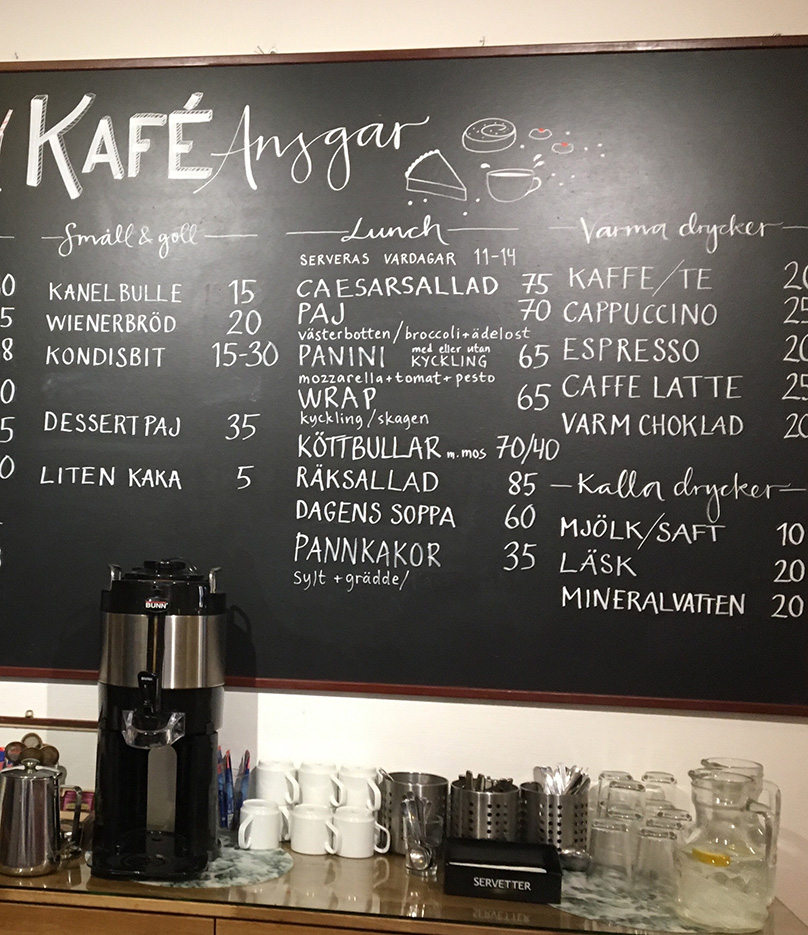 KAFÉ Ansgar
Smått & gott
KANELBULLE 15
WIENERBRÖD 20
KONDISBIT 15-30
DESSERTPAJ 35
LITEN KAKA 5
Lunch
SERVERAS VARDAGAR 11-14
CAESARSALLAD 75
PAJ 70
västerbotten/broccoli+ädelost
PANINI med eller utan KYCKLING 65
mozzarella+tomat+pesto
WRAP 65
kyckling/skagen
KÖTTBULLAR m.mos 70/40
RÄKSALLAD 85
DAGENS SOPPA 60
PANNKAKOR 35
Sylt + grädde/
Varma drycker
KAFFE/TE 20
CAPPUCCINO 25
ESPRESSO 20
CAFFE LATTE 25
VARM CHOKLAD 20
Kalla drycker
MJÖLK/SAFT 10
LÄSK 20
MINERALVATTEN 20
BUNN
SERVETTER